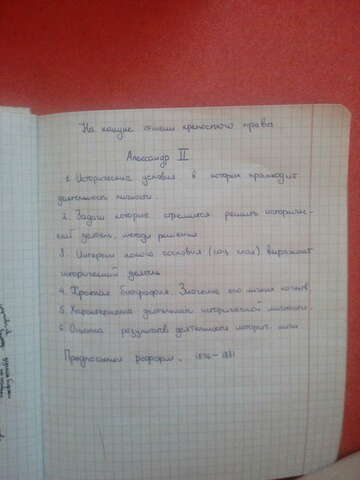 На кануне отмены крепостного права
Александр II
1. Исторические условия в котором приходит
деятельность личности.
2. Задачи которые стремился решить историчес-
кий деятель, методы решения
3. Интересы какого сословия (соц. слой) выражает
исторический деятель
4. Краткая биография. Значение его личных качеств.
5. Характеристика деятельности исторической личности.
6. Оценка результатов деятельности историч. личн.
Предпосылки реформ.